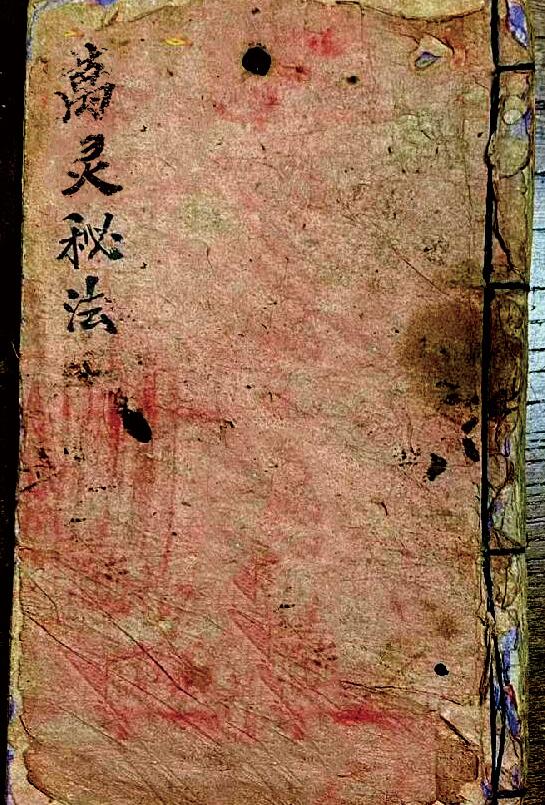 萬灵秘法